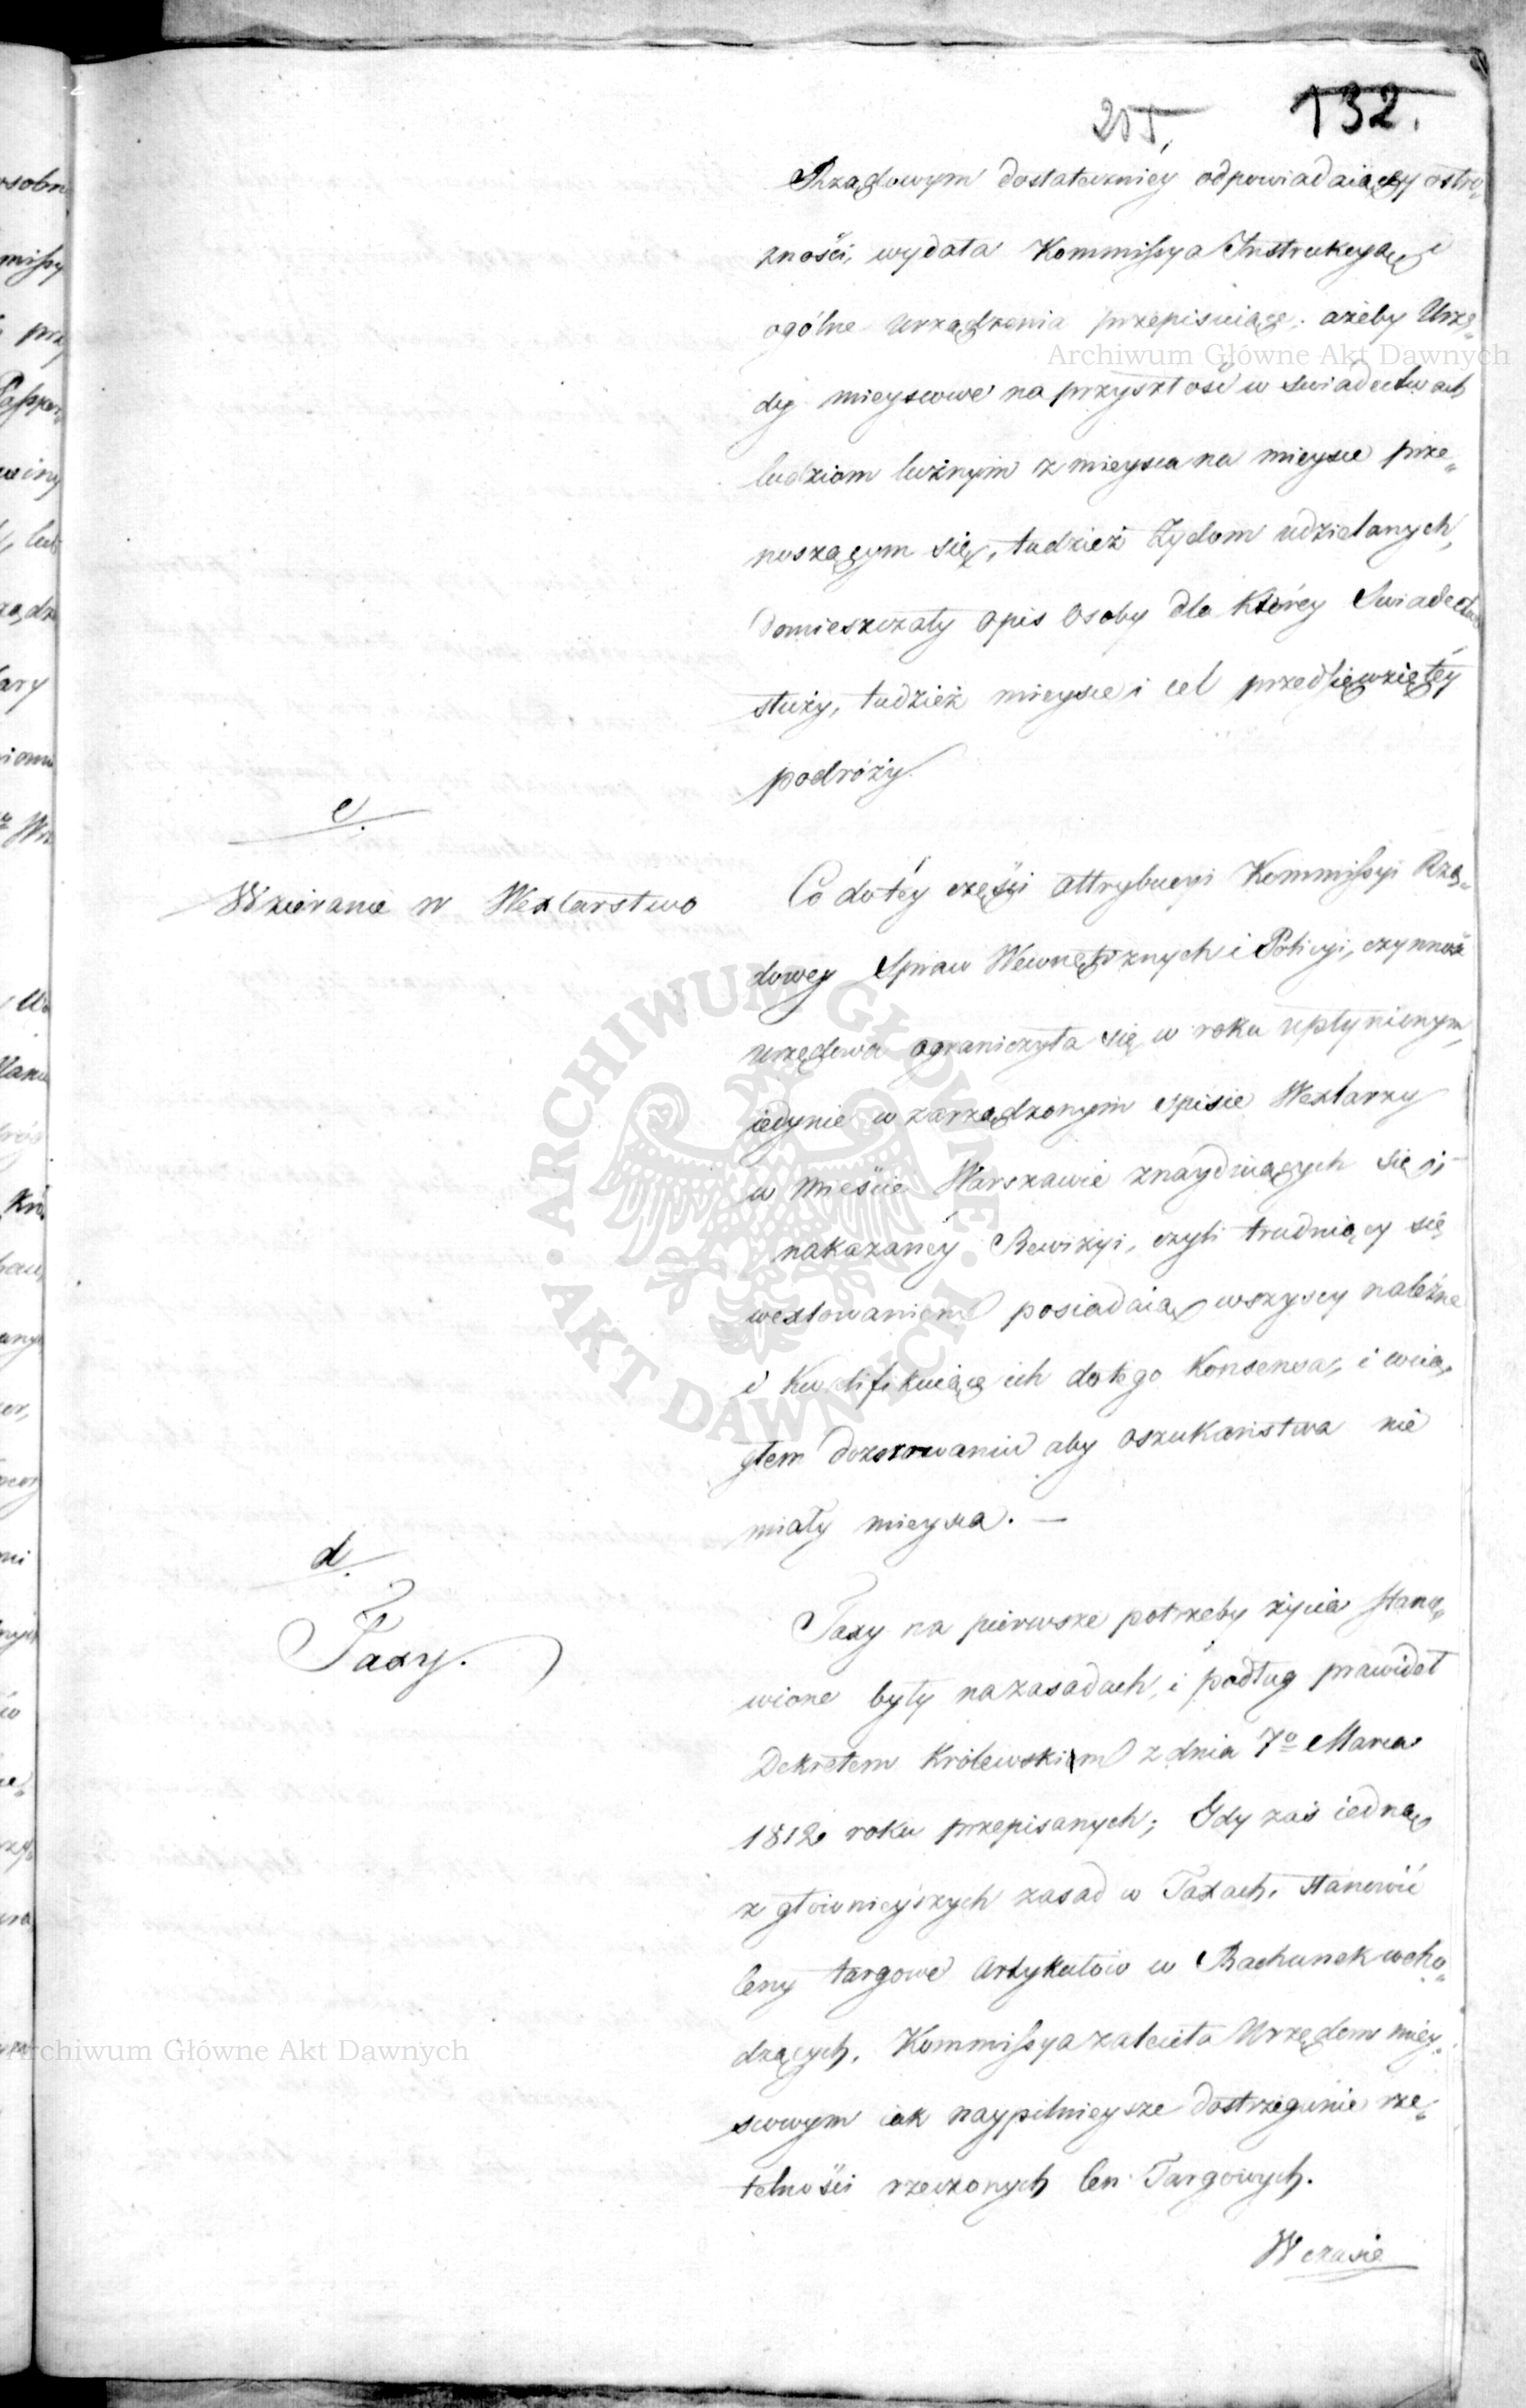 132.
Rządowym dostateczniey odpowiadaiącey ostro„
zności, wydała Kommissya Instrukcyą i
ogólne Urządzenia przepisuiące, ażeby Urzę„
Archiwum Główne Akt Dawnych
dy mieyscowe na przyszłość w swiadectwach
ludziom luźnym z mieysca na mieysce prze„
noszącym się, tudzież Żydom udzielanych,
domieszczały opis Osoby dla którey Swiadectwo
służy, tudzież mieysce i cel przedsięwziętéy
podróży.
c.
Wzieranie w Wexlarstwo
Co do téy części attrybucyi Kommissyi Rzą„
dowey Spraw Wewnętrznych i Policyi, czynność
urzędowa ograniczyła się w roku upłynionym,
iedynie w zarządzonym spisie Wexlarzy
w Mieście Warszawie znayduiących się, i
nakazanéy Rewizyi, czyli trudniący się
wexlowaniem posiadaią wszyscy należne
i kwalifikuiące ich do tego Konsensa, i wcią„
głem dozorowaniu aby oszukaństwa nie
miały mieysca. —
d.
Taxy.
Taxy na pierwsze potrzeby życia stano„
wione były na zasadach, i podług prawideł
Dekretem Królewskim z dnia 7º Marca
1812 roku przepisanych; Gdy zaś iedną
z główniejszych zasad w Taxach, stanowić
Ceny targowe Artykułów w Rachunek wcho„
dzących, Kommissya zaleciła Urzędom miey„
Archiwum Główne Akt Dawnych
scowym iak naypilnieysze dostrzeganie rze„
telności rzeczonych Cen Targowych.
W czasie
ARCHIWUM GŁÓWNE • AKT DAWNYCH •